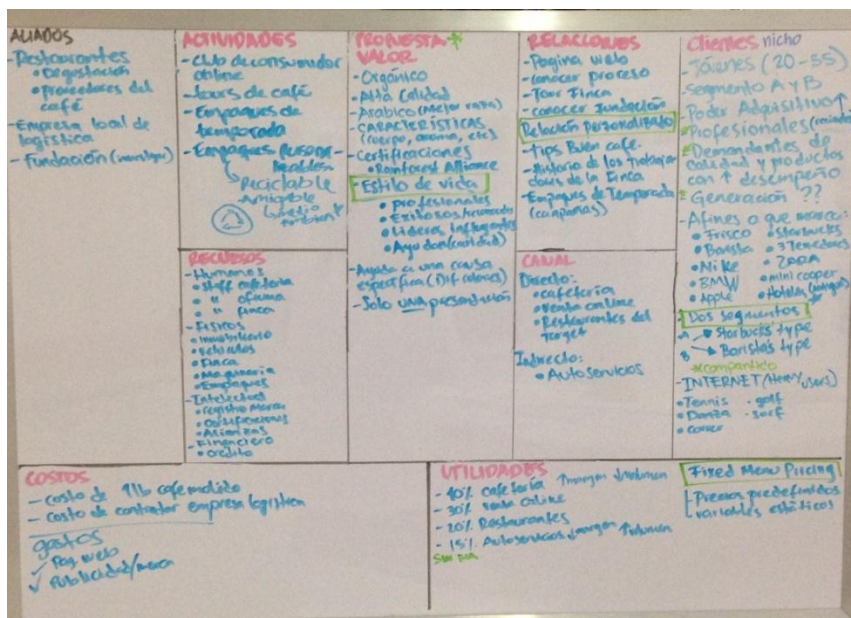 ALIADOS
- Restaurantes
• Degustación
• proveedores del
café
- Empresa local de
logística
- Fundación
ACTIVIDADES
- Club de consumidor
online
- tours de café
- Empaques de
temporada
- Empaques
Reciclable
Amigable
medio
ambient
RECURSOS
- Humanos
• Staff cafetería
• " oficina
• " finca
- FISICOS
• inmobiliario
• vehiculos
• Finca
• Maquinaria
• Empaques
- Intelectual
• registro marca
• certificaciones
• Alianzas
- Financiero
• credito
PROPUESTA *
VALOR
- Orgánico
- Alta Calidad
- Arabico (Mejor
- CARACTERÍSTICAS
(cuerpo, aroma, etc)
- Certificaciones
• Rainforest Alliance
- Estilo de vida
• profesionales
• Exitosos
• Lideres Influyentes
• Ayudan (caridad)
- Ayuda a una causa
específica (Dif. colores)
- Solo UNA presentación
RELACIONES
- Pagina web
- conocer proceso
- Tour Finca
- conocer Fundación
Relación personalizada
- Tips Buen cafe.
- Historia de los trabaja
dores de la Finca
- Empaques de Temporada
(campañas)
CANAL
Directo:
• cafetería
• Venta online
• Restaurantes del
target
Indirecto:
• Autoservicios
Clientes nicho
- Jóvenes (20-35)
- Segmento A y B
- Poder Adquisitivo ↑
Profesionales
Demandantes de
calidad y productos
con ↑ desempeño
Generación ??
- Afines a que marca:
• Frisco • Starbucks
• Barista • 3 Tenedores
• Nike • ZARA
• BMW • mini cooper
• Apple • Hoteles
- Dos segmentos
A → Starbucks' type
B → Barista's type
* compartido
- INTERNET (Heavy users)
• Tennis • golf
• Danza • surf
• correr
COSTOS
- costo de 1lb cafe molido
- costo de contratar empresa logistica
gastos
✓ Pag. web
✓ Publicidad/marca
UTILIDADES
- 40% Cafetería ↑margen ↓volumen
- 30% venta online
- 20% Restaurantes
- 15% Autoservicios ↓margen ↑volumen
Fixed Menu Pricing
Precios predefinidos
variables estáticos